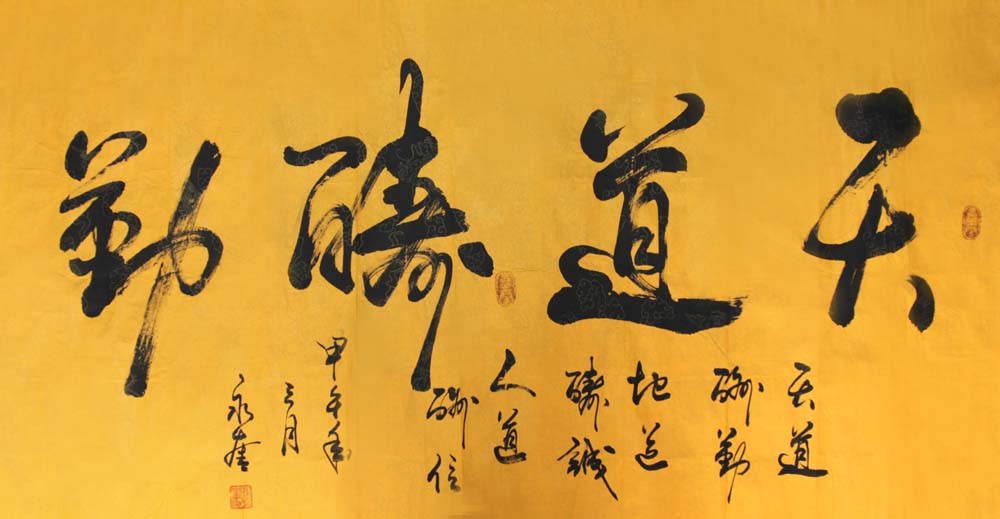 天道酬勤
天道
酬勤
地道
酬誠
人道
酬信
甲午年
三月
永奎